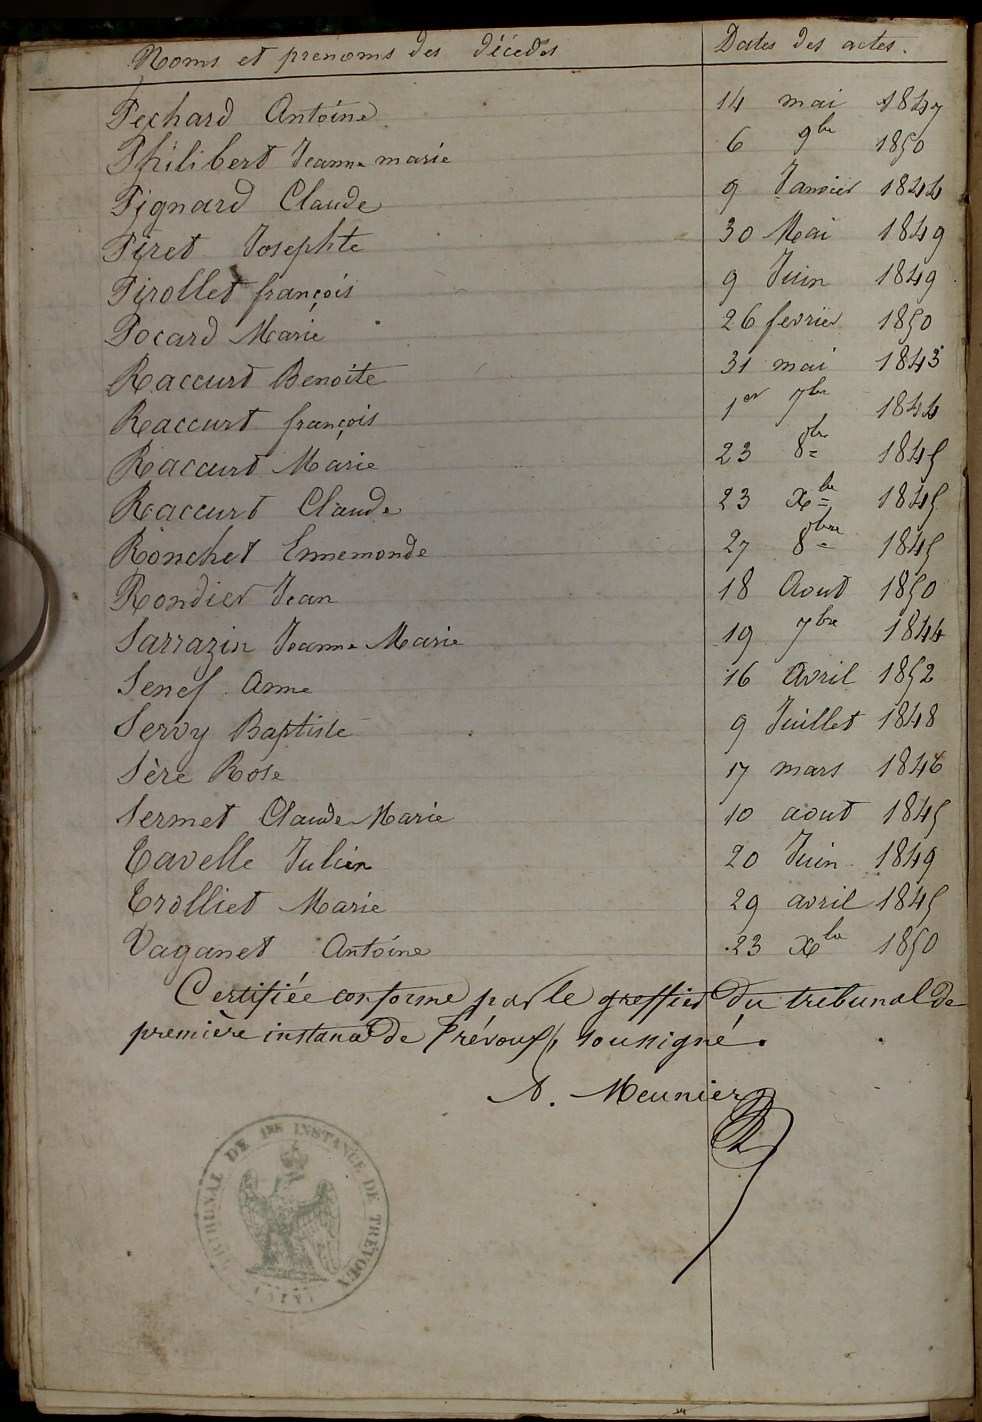 Noms et prenoms des décedés Dates des actes.
Pechard Antoine 14 mai 1847
Philibert Jeanne marie 6 9bre 1850
Pignard Claude 9 Janvier 1844
Piret Josephte 30 Mai 1849
Pirollet françois 9 Juin 1849
Pocard Marie 26 fevrier 1850
Raccurt Benoite 31 mai 1843
Raccurt françois 1er 7bre 1844
Raccurt Marie 23 8bre 1845
Raccurt Claude 23 Xbre 1845
Ronchet Ennemonde 27 8bre 1845
Rondier Jean 18 Aout 1850
Sarrazin Jeanne Marie 19 7bre 1844
Senef Anne 16 Avril 1852
Servy Baptiste 9 Juillet 1848
Sère Rose 17 mars 1846
Sermet Claude Marie 10 aout 1845
Tavelle Julien 20 Juin 1849
Trolliet Marie 29 avril 1845
Vaganet Antoine 23 Xbre 1850
Certifiée conforme par le greffier du tribunal de
première instance de Trévoux, soussigné.
A. Meunier
TRIBUNAL DE 1RE INSTANCE DE TRÉVOUX
(AIN)